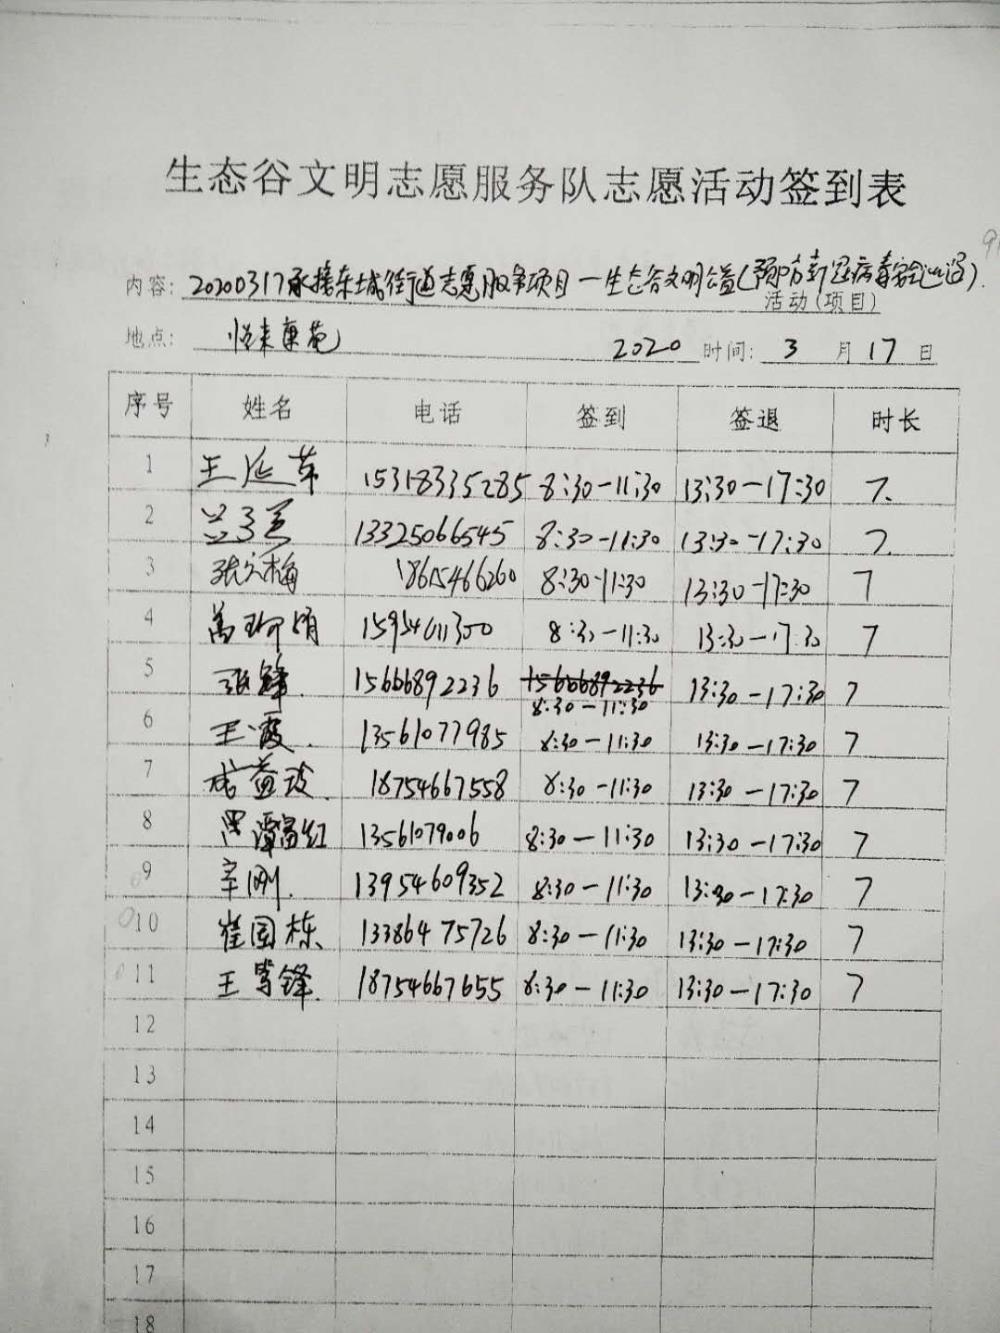 生态谷文明志愿服务队志愿活动签到表
内容: 20200317承接东城街道志愿服务项目一生态谷文明公益(预防新冠病毒
活动(项目)
地点: 悦来康苑 2020 时间: 3 月 17 日
序号 姓名 电话 签到 签退 时长
1 王延华 15318335285 8:30-11:30 13:30-17:30 7.
2 13325066545 8:30-11:30 13:30-17:30 7.
3 梅 18615466260 8:30-11:30 13:30-17:30 7
4 娟 15954611300 8:30-11:30 13:30-17:30 7
5 张锋. 15666892236 15666892236 13:30-17:30 7
8:30-11:30
6 王霞. 13561077985 8:30-11:30 13:30-17:30 7
7 18754667558 8:30-11:30 13:30-17:30 7
8 谭富红 13561079006 8:30-11:30 13:30-17:30 7
9 辛刚. 13954609352 8:30-11:30 13:30-17:30 7
10 崔国栋 13386475726 8:30-11:30 13:30-17:30 7
11 王 锋. 18754667655 8:30-11:30 13:30-17:30 7
12
13
14
15
16
17
18